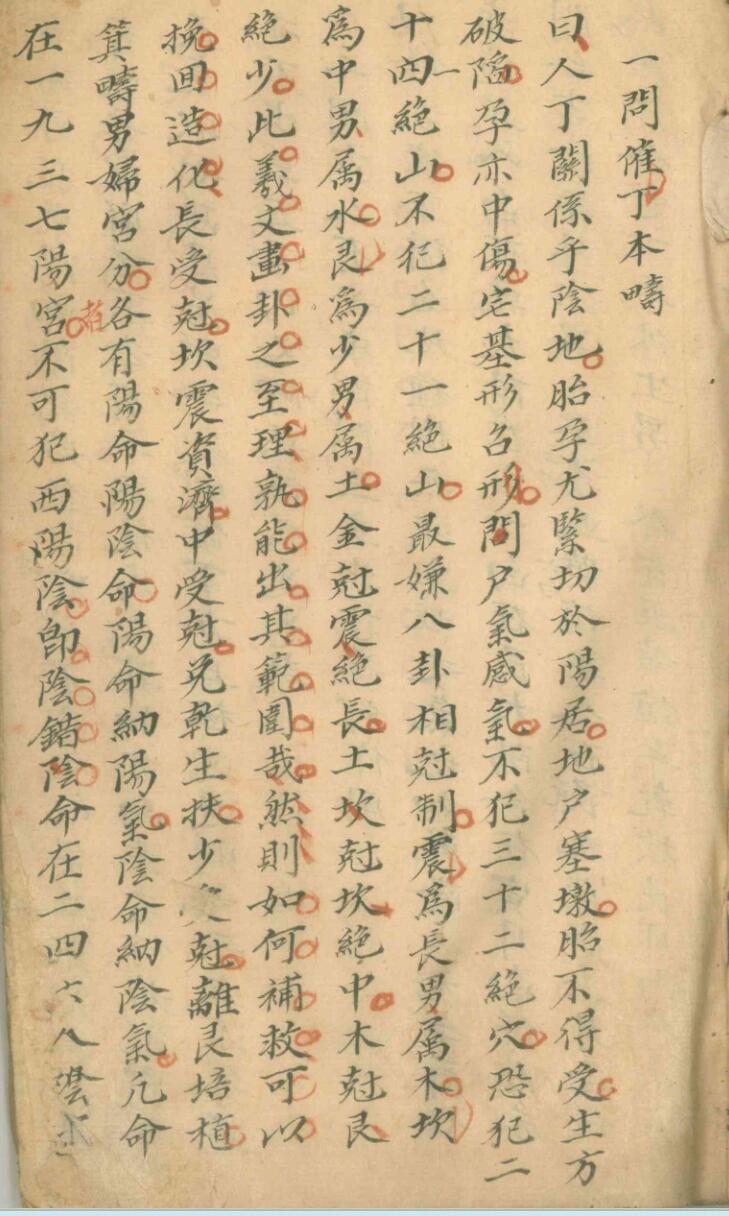 一問催丁本疇
曰人丁關係乎陰地胎孕尤緊切於陽居地户塞墩胎不得受生方
破陷孕亦中傷宅基形召形問户氣感氣不犯三十二絕穴恐犯二
十四一絕山不犯二十一絕山最嫌八卦相尅制震爲長男属木坎
爲中男属水艮爲少男属土金尅震絕長土坎尅坎絕中木尅艮
絕少此羲文畫卦之至理孰能出其範圍哉然則如何補救可以
挽囬造化長受尅坎震資濟中受尅兌乾生扶少尅離艮培植
箕疇男婦宮分各有陽命陽陰命陽命納陽氣陰命納陰氣凡命
在一九三七陽宮者不可犯西陽陰卽陰錯陰命在二四六八陰